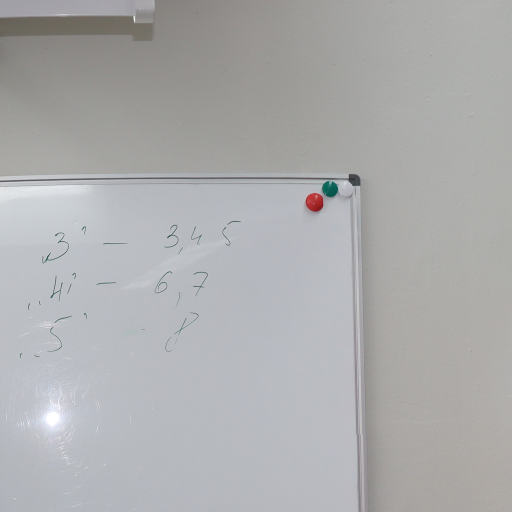 „3" – 3,4 5
„4" – 6,7
„5" - 8